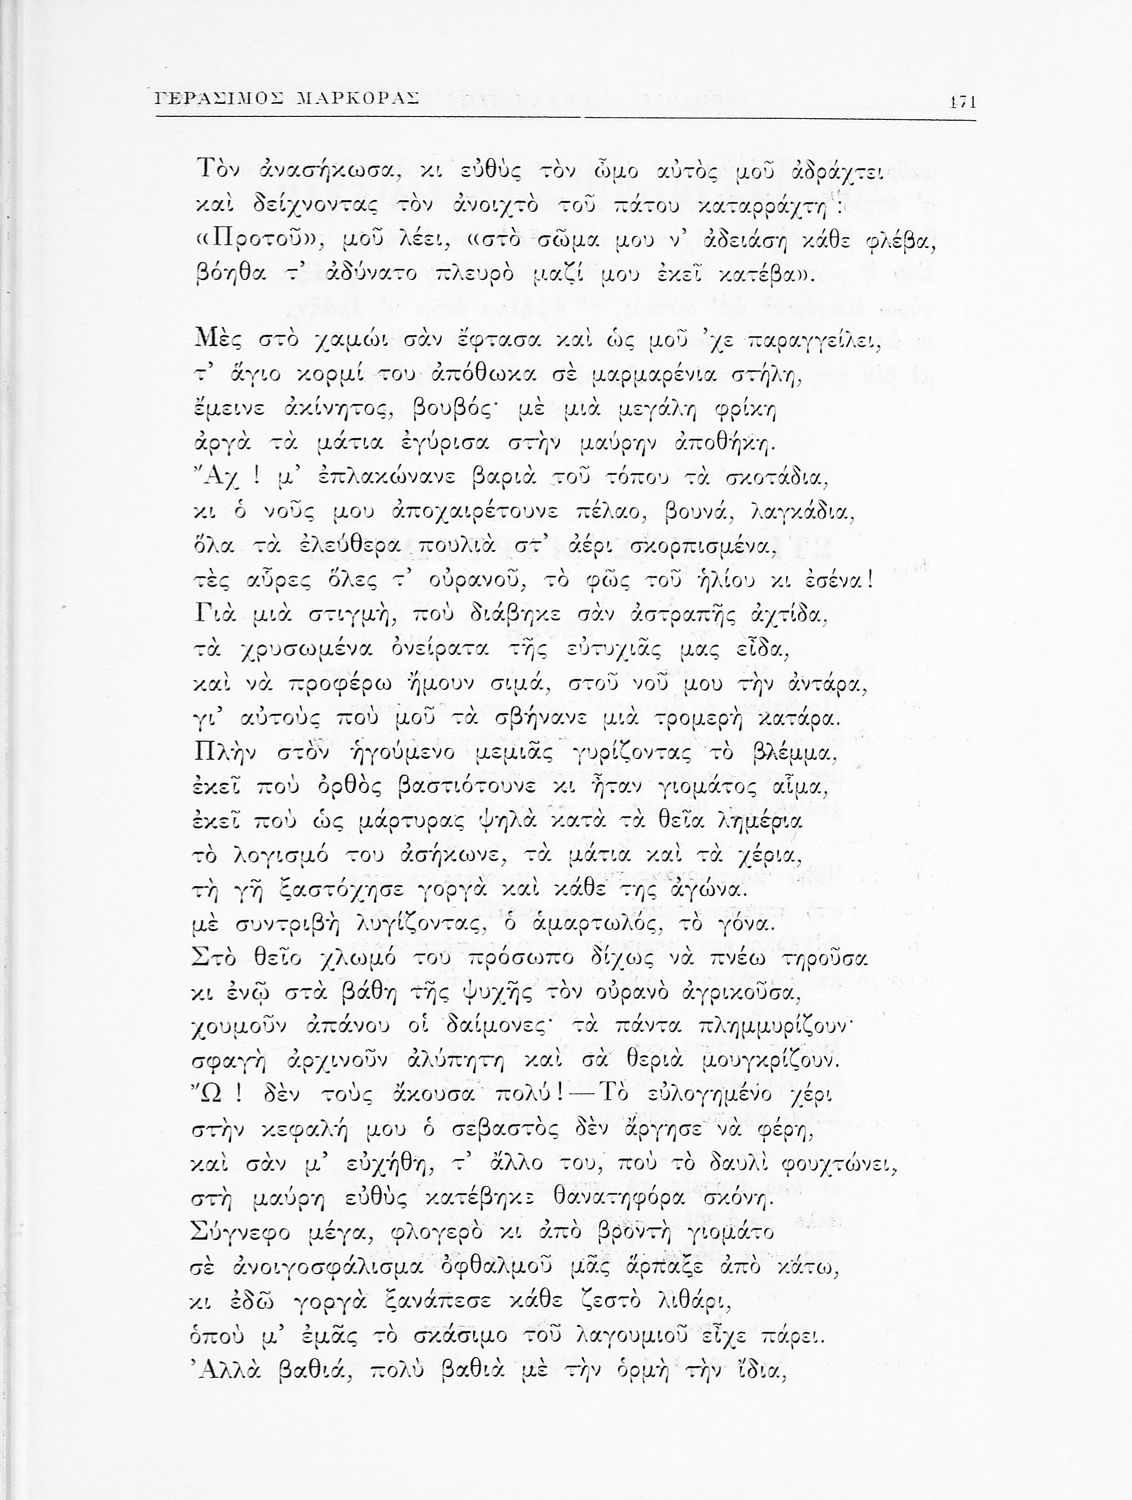 ΓΕΡΑΣΙΜΟΣ ΜΑΡΚΟΡΑΣ 171
Τὸν ἀνασήκωσα, κι εὐθὺς τὸν ὦμο αὐτὸς μοῦ ἀδράχτει
καὶ δείχνοντας τὸν ἀνοιχτὸ τοῦ πάτου καταρράχτη :
«Προτοῦ», μοῦ λέει, «στὸ σῶμα μου ν’ ἀδειάση κάθε φλέβα,
βόηθα τ’ ἀδύνατο πλευρὸ μαζί μου ἐκεῖ κατέβα».
Μὲς στὸ χαμώι σὰν ἔφτασα καὶ ὡς μοῦ ’χε παραγγείλει,
τ’ ἅγιο κορμί του ἀπόθωκα σὲ μαρμαρένια στήλη,
ἔμεινε ἀκίνητος, βουβός· μὲ μιὰ μεγάλη φρίκη
ἀργὰ τὰ μάτια ἐγύρισα στὴν μαύρην ἀποθήκη.
Ἄχ ! μ’ ἐπλακώνανε βαριὰ τοῦ τόπου τὰ σκοτάδια,
κι ὁ νοῦς μου ἀποχαιρέτουνε πέλαο, βουνά, λαγκάδια,
ὅλα τὰ ἐλεύθερα πουλιὰ στ’ ἀέρι σκορπισμένα,
τὲς αὖρες ὅλες τ’ οὐρανοῦ, τὸ φῶς τοῦ ἡλίου κι ἐσένα!
Γιὰ μιὰ στιγμὴ, ποὺ διάβηκε σὰν ἀστραπῆς ἀχτίδα,
τὰ χρυσωμένα ὀνείρατα τῆς εὐτυχιᾶς μας εἶδα,
καὶ νὰ προφέρω ἤμουν σιμά, στοῦ νοῦ μου τὴν ἀντάρα,
γι’ αὐτοὺς ποὺ μοῦ τὰ σβήνανε μιὰ τρομερὴ κατάρα.
Πλὴν στὸν ἡγούμενο μεμιᾶς γυρίζοντας τὸ βλέμμα,
ἐκεῖ ποὺ ὀρθὸς βαστιότουνε κι ἦταν γιομάτος αἷμα,
ἐκεῖ ποὺ ὡς μάρτυρας ψηλὰ κατὰ τὰ θεῖα λημέρια
τὸ λογισμό του ἀσήκωνε, τὰ μάτια καὶ τὰ χέρια,
τὴ γῆ ξαστόχησε γοργὰ καὶ κάθε της ἀγώνα.
μὲ συντριβὴ λυγίζοντας, ὁ ἁμαρτωλός, τὸ γόνα.
Στὸ θεῖο χλωμό του πρόσωπο δίχως νὰ πνέω τηροῦσα
κι ἐνῷ στὰ βάθη τῆς ψυχῆς τὸν οὐρανὸ ἀγρικοῦσα,
χουμοῦν ἀπάνου οἱ δαίμονες· τὰ πάντα πλημμυρίζουν·
σφαγὴ ἀρχινοῦν ἀλύπητη καὶ σὰ θεριὰ μουγκρίζουν.
Ὤ ! δὲν τοὺς ἄκουσα πολύ!—Τὸ εὐλογημένο χέρι
στὴν κεφαλή μου ὁ σεβαστὸς δὲν ἄργησε νὰ φέρη,
καὶ σὰν μ’ εὐχήθη, τ’ ἄλλο του, ποὺ τὸ δαυλὶ φουχτώνει,
στὴ μαύρη εὐθὺς κατέβηκε θανατηφόρα σκόνη.
Σύγνεφο μέγα, φλογερὸ κι ἀπὸ βροντὴ γιομάτο
σὲ ἀνοιγοσφάλισμα ὀφθαλμοῦ μᾶς ἅρπαξε ἀπὸ κάτω,
κι ἐδῶ γοργὰ ξανάπεσε κάθε ζεστὸ λιθάρι,
ὁποὺ μ’ ἐμᾶς τὸ σκάσιμο τοῦ λαγουμιοῦ εἶχε πάρει.
Ἀλλὰ βαθιά, πολὺ βαθιὰ μὲ τὴν ὁρμὴ τὴν ἴδια,